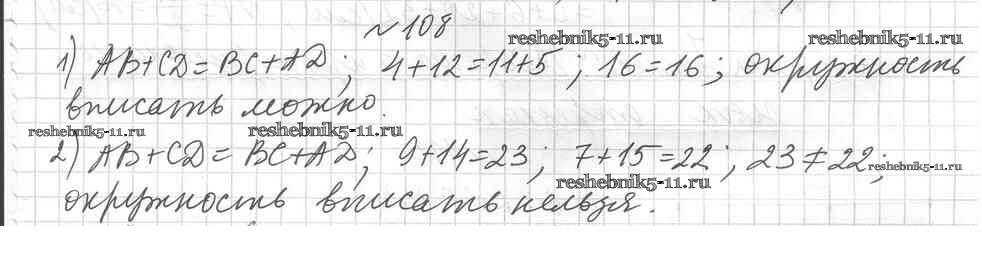 №108
reshebnik5-11.ru
1) AB+CD=BC+AD; 4+12=11+5; 16=16; окружность
вписать можно.
reshebnik5-11.ru reshebnik5-11.ru
2) AB+CD=BC+AD; 9+14=23; 7+15=22; 23≠22; reshebnik5-11.ru
reshebnik5-11.ru
окружность вписать нельзя.